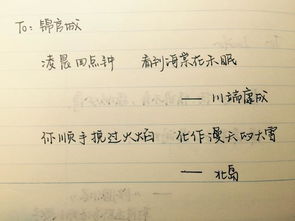 To: 锦官城
凌晨四点钟 看到海棠花未眠
—— 川端康成
你顺手挽过火焰 化作漫天的大雪
—— 北岛